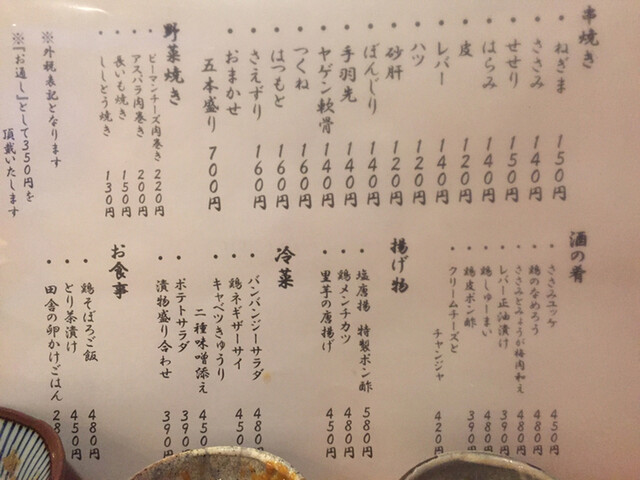 串焼き
・ねぎま 150円
・ささみ 140円
・せせり 150円
・はらみ 140円
・皮 120円
・レバー 140円
・ハツ 120円
・砂肝 120円
・ぼんじり 140円
・手羽先 140円
・ヤゲン軟骨 140円
・つくね 160円
・はつもと 160円
・さえずり 160円
・おまかせ
五本盛り 700円
野菜焼き
・ピーマンチーズ肉巻き 220円
・アスパラ肉巻き 200円
・長いも焼き 150円
・ししとう焼き 130円
※外税表記となります
※『お通し』として350円を
頂戴いたします
酒の肴
・ささみユッケ 450円
・鶏のなめろう 480円
・ささみとみょうが梅肉和え 480円
・レバー正油漬け 390円
・鶏しゅーまい 480円
・鶏皮ポン酢 390円
・クリームチーズと
チャンジャ 420円
揚げ物
・塩唐揚 特製ポン酢 580円
・鶏メンチカツ 480円
・里芋の唐揚げ 450円
冷菜
・バンバンジーサラダ 480
・鶏ネギザーサイ 450
・キャベツきゅうり
二種味噌添え 450
・ポテトサラダ 390円
・漬物盛り合わせ 390円
お食事
・鶏そぼろご飯 480円
・とり茶漬け 450円
・田舎の卵かけごはん 28